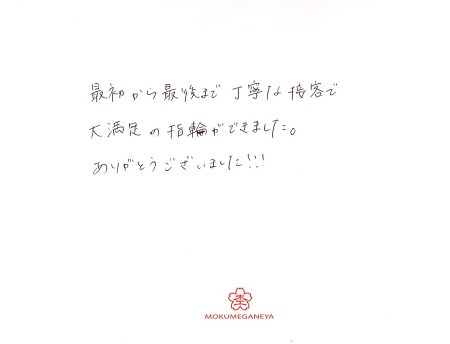 最初から最後まで丁寧な接客で
大満足の指輪ができました。
ありがとうございました!!!
杢
MOKUMEGANEYA